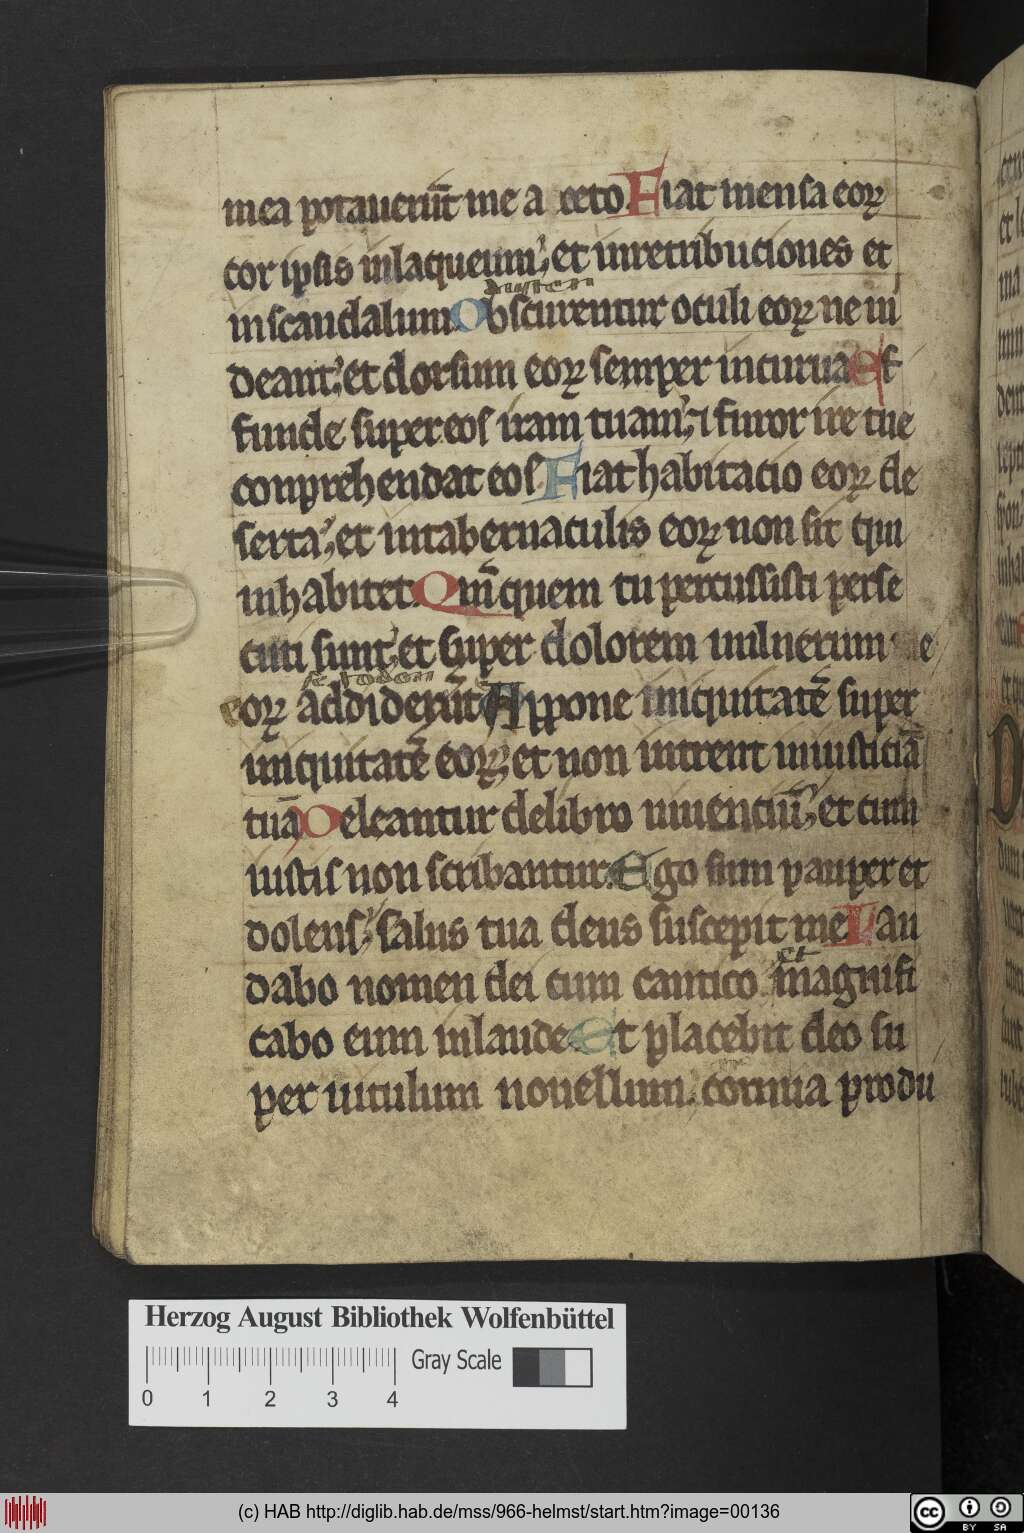 mea potauerūt me a ceto Fiat mensa eoꝝ
cor ipsis inlaqueum; et inretribuciones et
dusten
inscandalum Obscurentur oculi eoꝝ ne ui
deant; et dorsum eoꝝ semper incurua Ef
funde super eos iram tuam; ⁊ furor ire tue
conprehendat eos Fiat habitacio eoꝝ de
serta; et intabernaculis eoꝝ non sit qui
inhabitet Qm̄ quem tu percussisti perse
cuti sunt; et super dolorem uulnerum
eoꝝ addiderūt Appone iniquitatē super
iniquitatē eoꝝ; et non intrent iniusticiā
tuā Deleantur delibro uiuenciū; et cum
iustis non scribantur. Ego sum pauper et
dolens; salus tua deus suscepit me Lau
et
dabo nomen dei cum cantico magnifi
cabo eum inlaude Et placebit deo su
per uitulum nouellum. cornua produ
Herzog August Bibliothek Wolfenbüttel
Gray Scale
0 1 2 3 4
(c) HAB http://diglib.hab.de/mss/966-helmst/start.htm?image=00136
cc BY SA